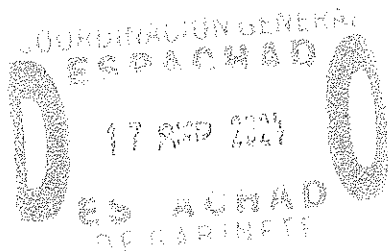 COORDINACIÓN GENERAL
DESPACHADO
17
DES ACHADO
DE GABINETE